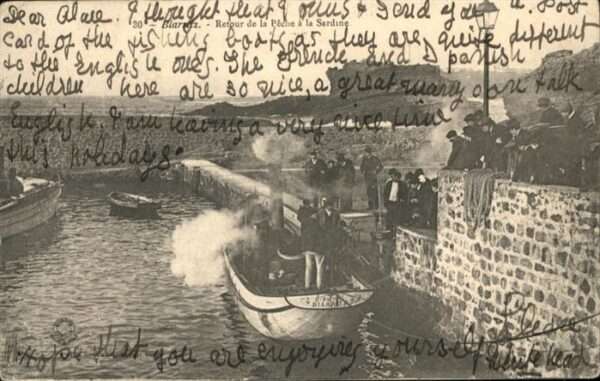 Dear Alace. I thought that I must Send you a Post
30 - Biarritz. - Retour de la Pêche à la Sardine
Card of the fishing boats as they are quite different
to the English ones. The French and Spanish
children here are so nice, a great many can talk
English. I am having a very nice time
this holidays.
I Hope that you are enjoying yourself
Whitehead